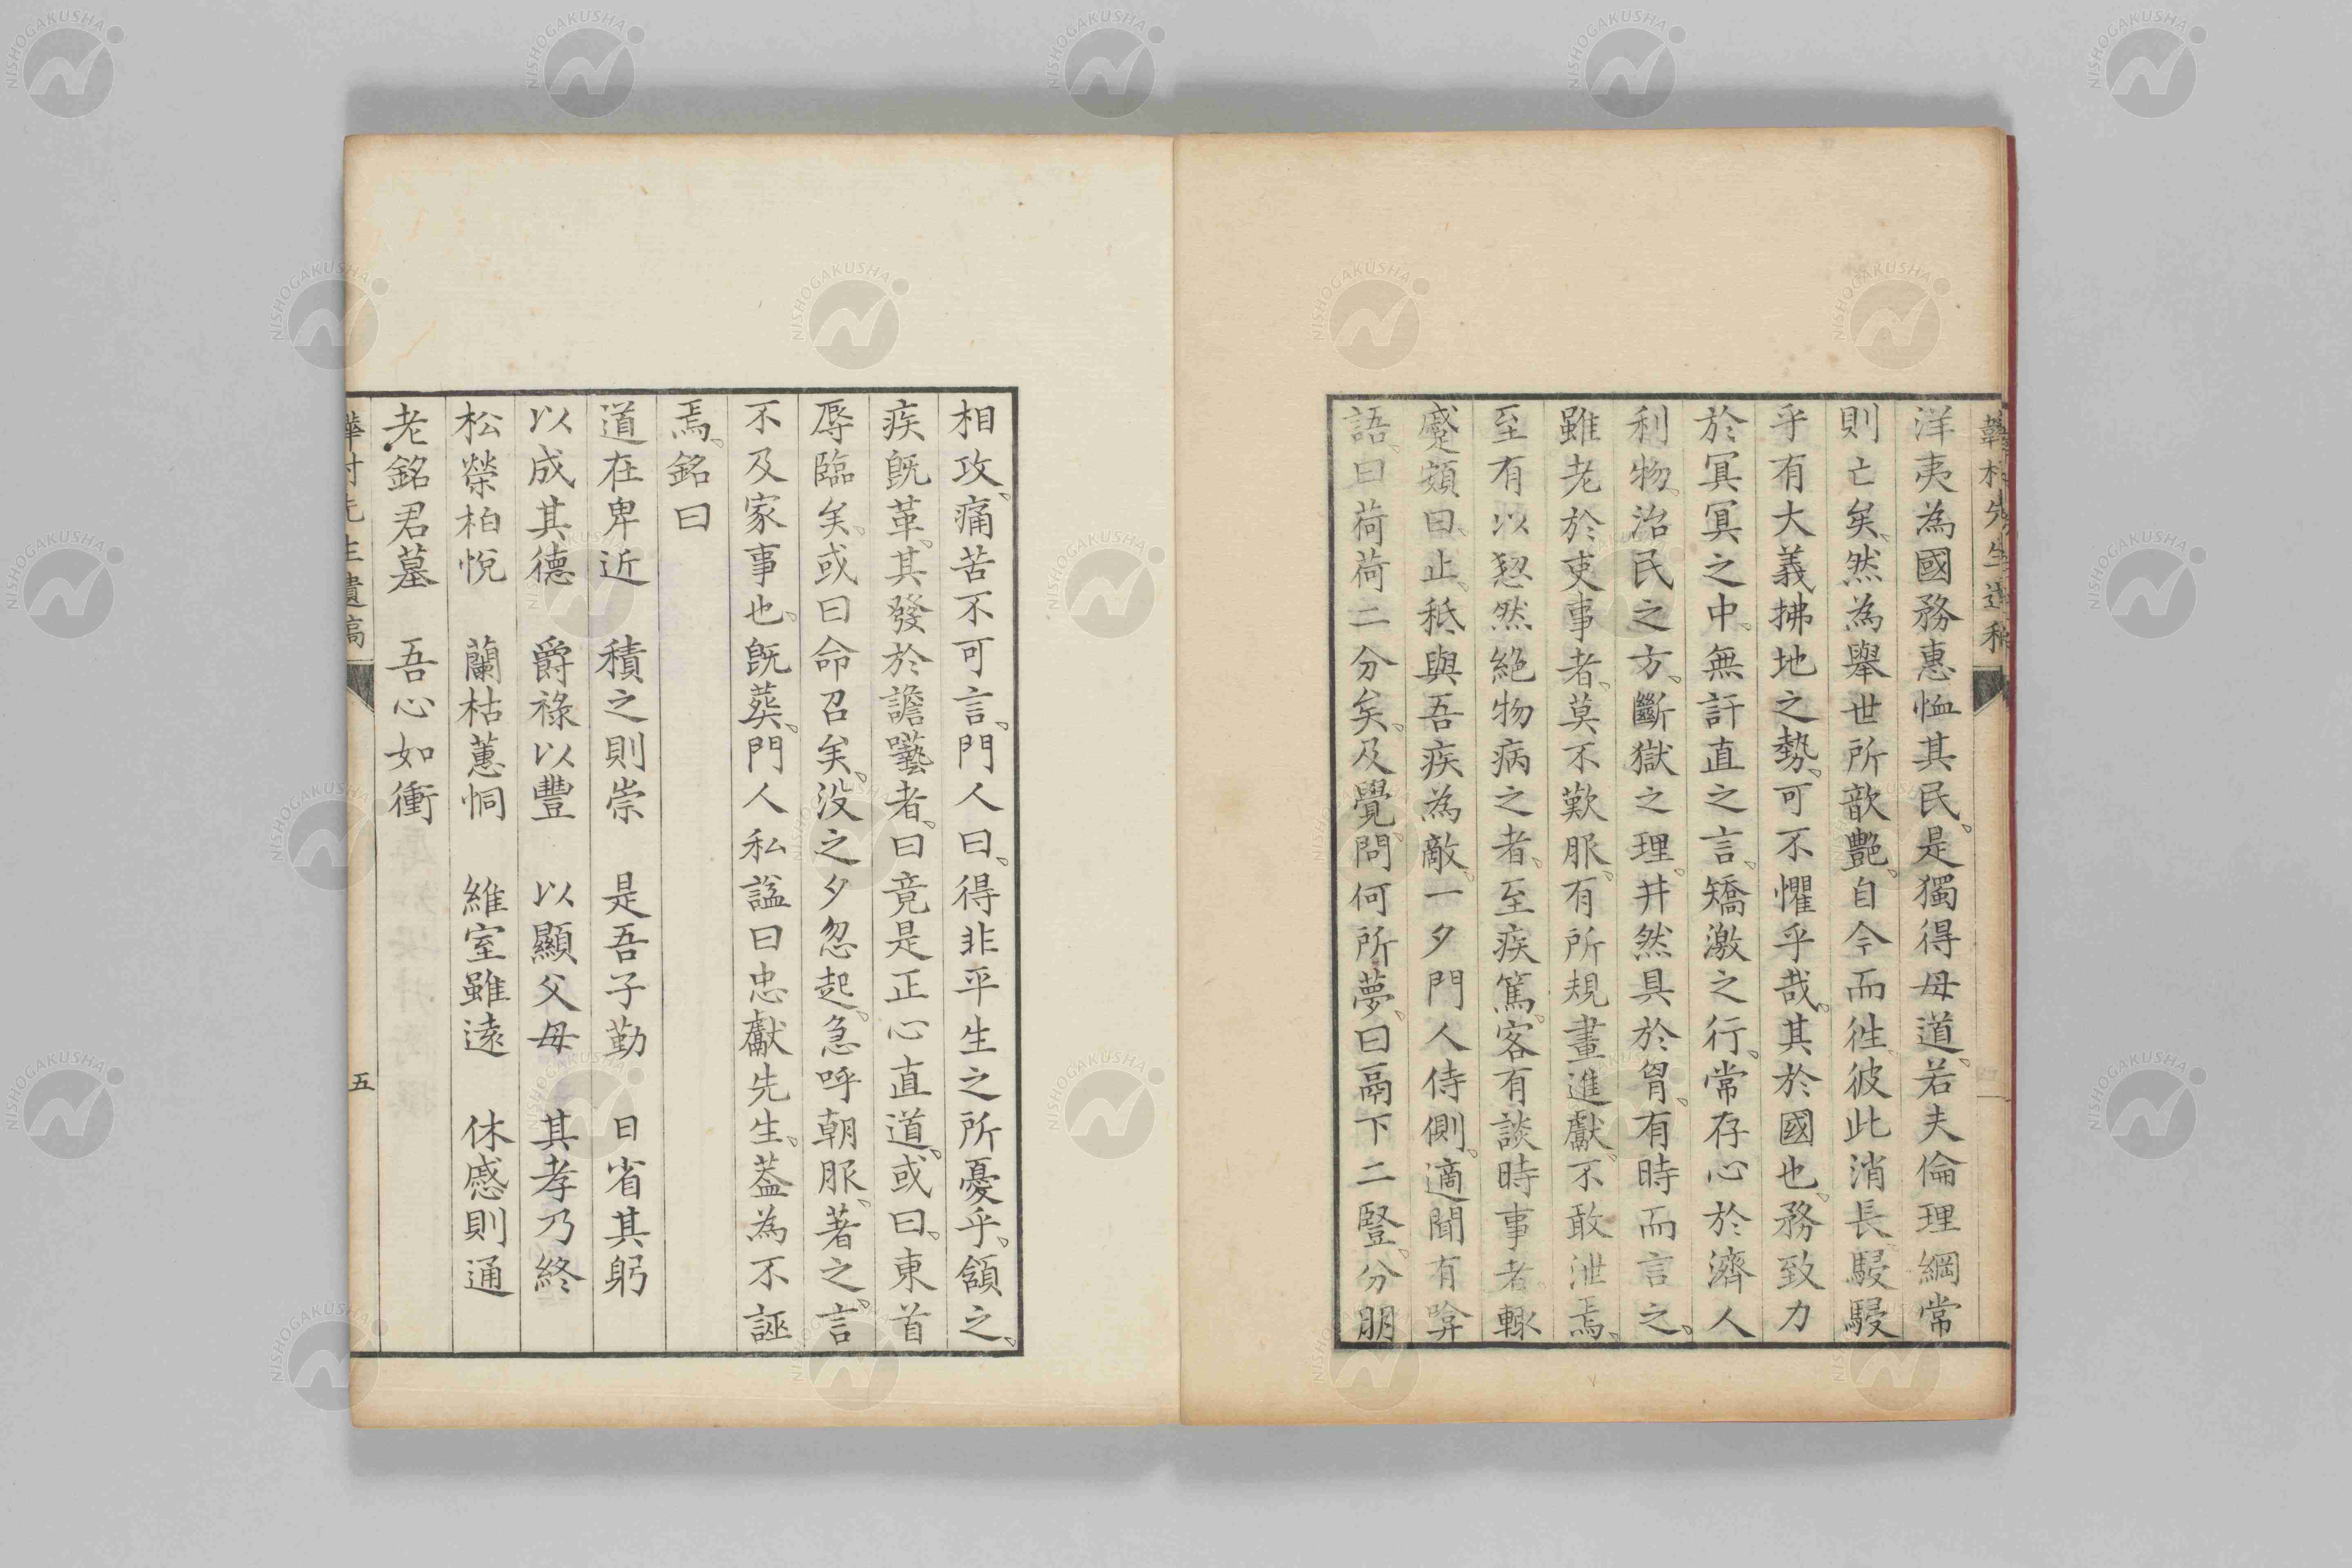 洋夷為國務惠恤其民。是獨得母道。若夫倫理綱常
則亡矣。然為舉世所歆艷。自今而徃。彼此消長。駸駸
乎有大義拂地之勢。可不懼乎哉。其於國也。務致力
於冥冥之中。無訐直之言。矯激之行。常存心於濟人
利物。治民之方。斷獄之理。井然具於胷。有時而言之。
雖老於吏事者。莫不歎服。有所規畫進獻。不敢泄焉。
至有以愬然絕物病之者。至疾篤。客有談時事者。輙
蹙頞曰。止。秪與吾疾為敵。一夕門人侍側。適聞有㖗
語。曰荷荷二分矣。及覺。問何所夢。曰鬲下二豎。分朋
相攻。痛苦不可言。門人曰。得非平生之所憂乎。頷之。
疾既革。其發於譫囈者。曰竟是正心直道。或曰。東首
辱臨矣。或曰命召矣。没之夕忽起。急呼朝服。著之。言
不及家事也。既葬。門人私謚曰忠獻先生。葢為不誣
焉。銘曰
道在卑近　積之則崇　是吾子勤　日省其躬
以成其德　爵祿以豐　以顯父母　其孝乃終
松榮柏悅　蘭枯蕙恫　維室雖遠　休慼則通
老銘君墓　吾心如衝
先生遺稿
五
NISHOGAKUSHA